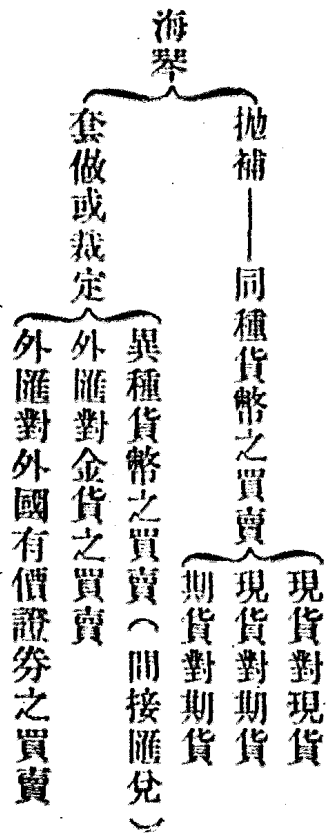 海琴
拋補——同種貨幣之買賣
現貨對現貨
現貨對期貨
期貨對期貨
套做或裁定
異種貨幣之買賣（間接匯兌）
外匯對金貨之買賣
外匯對外國有價證券之買賣